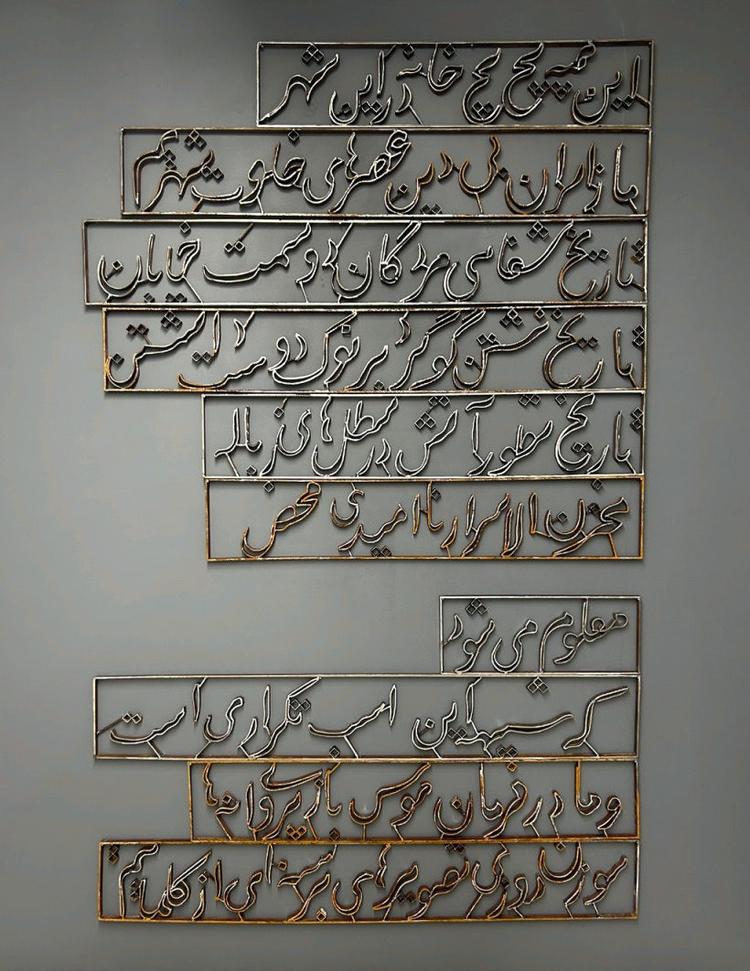 این همه پیچ پیچ خانه در این شهر
ما زایران بی دین عصرهای خلوت شهریم
تاریخ شفاهی مردگان در دو سمت خیابان
تاریخ نشستن گوگرد بر نوک دو سه انگشتن
تاریخ سطور آتش در سطل های زباله
مخزن الاسرار ناامیدی محض
معلوم می شود
که شیهه این اسب تکراری است
و ما در فرمان موسی باز پروانه ها
سوزن دوزی تصویرهای برهنه ای از کلماتیم